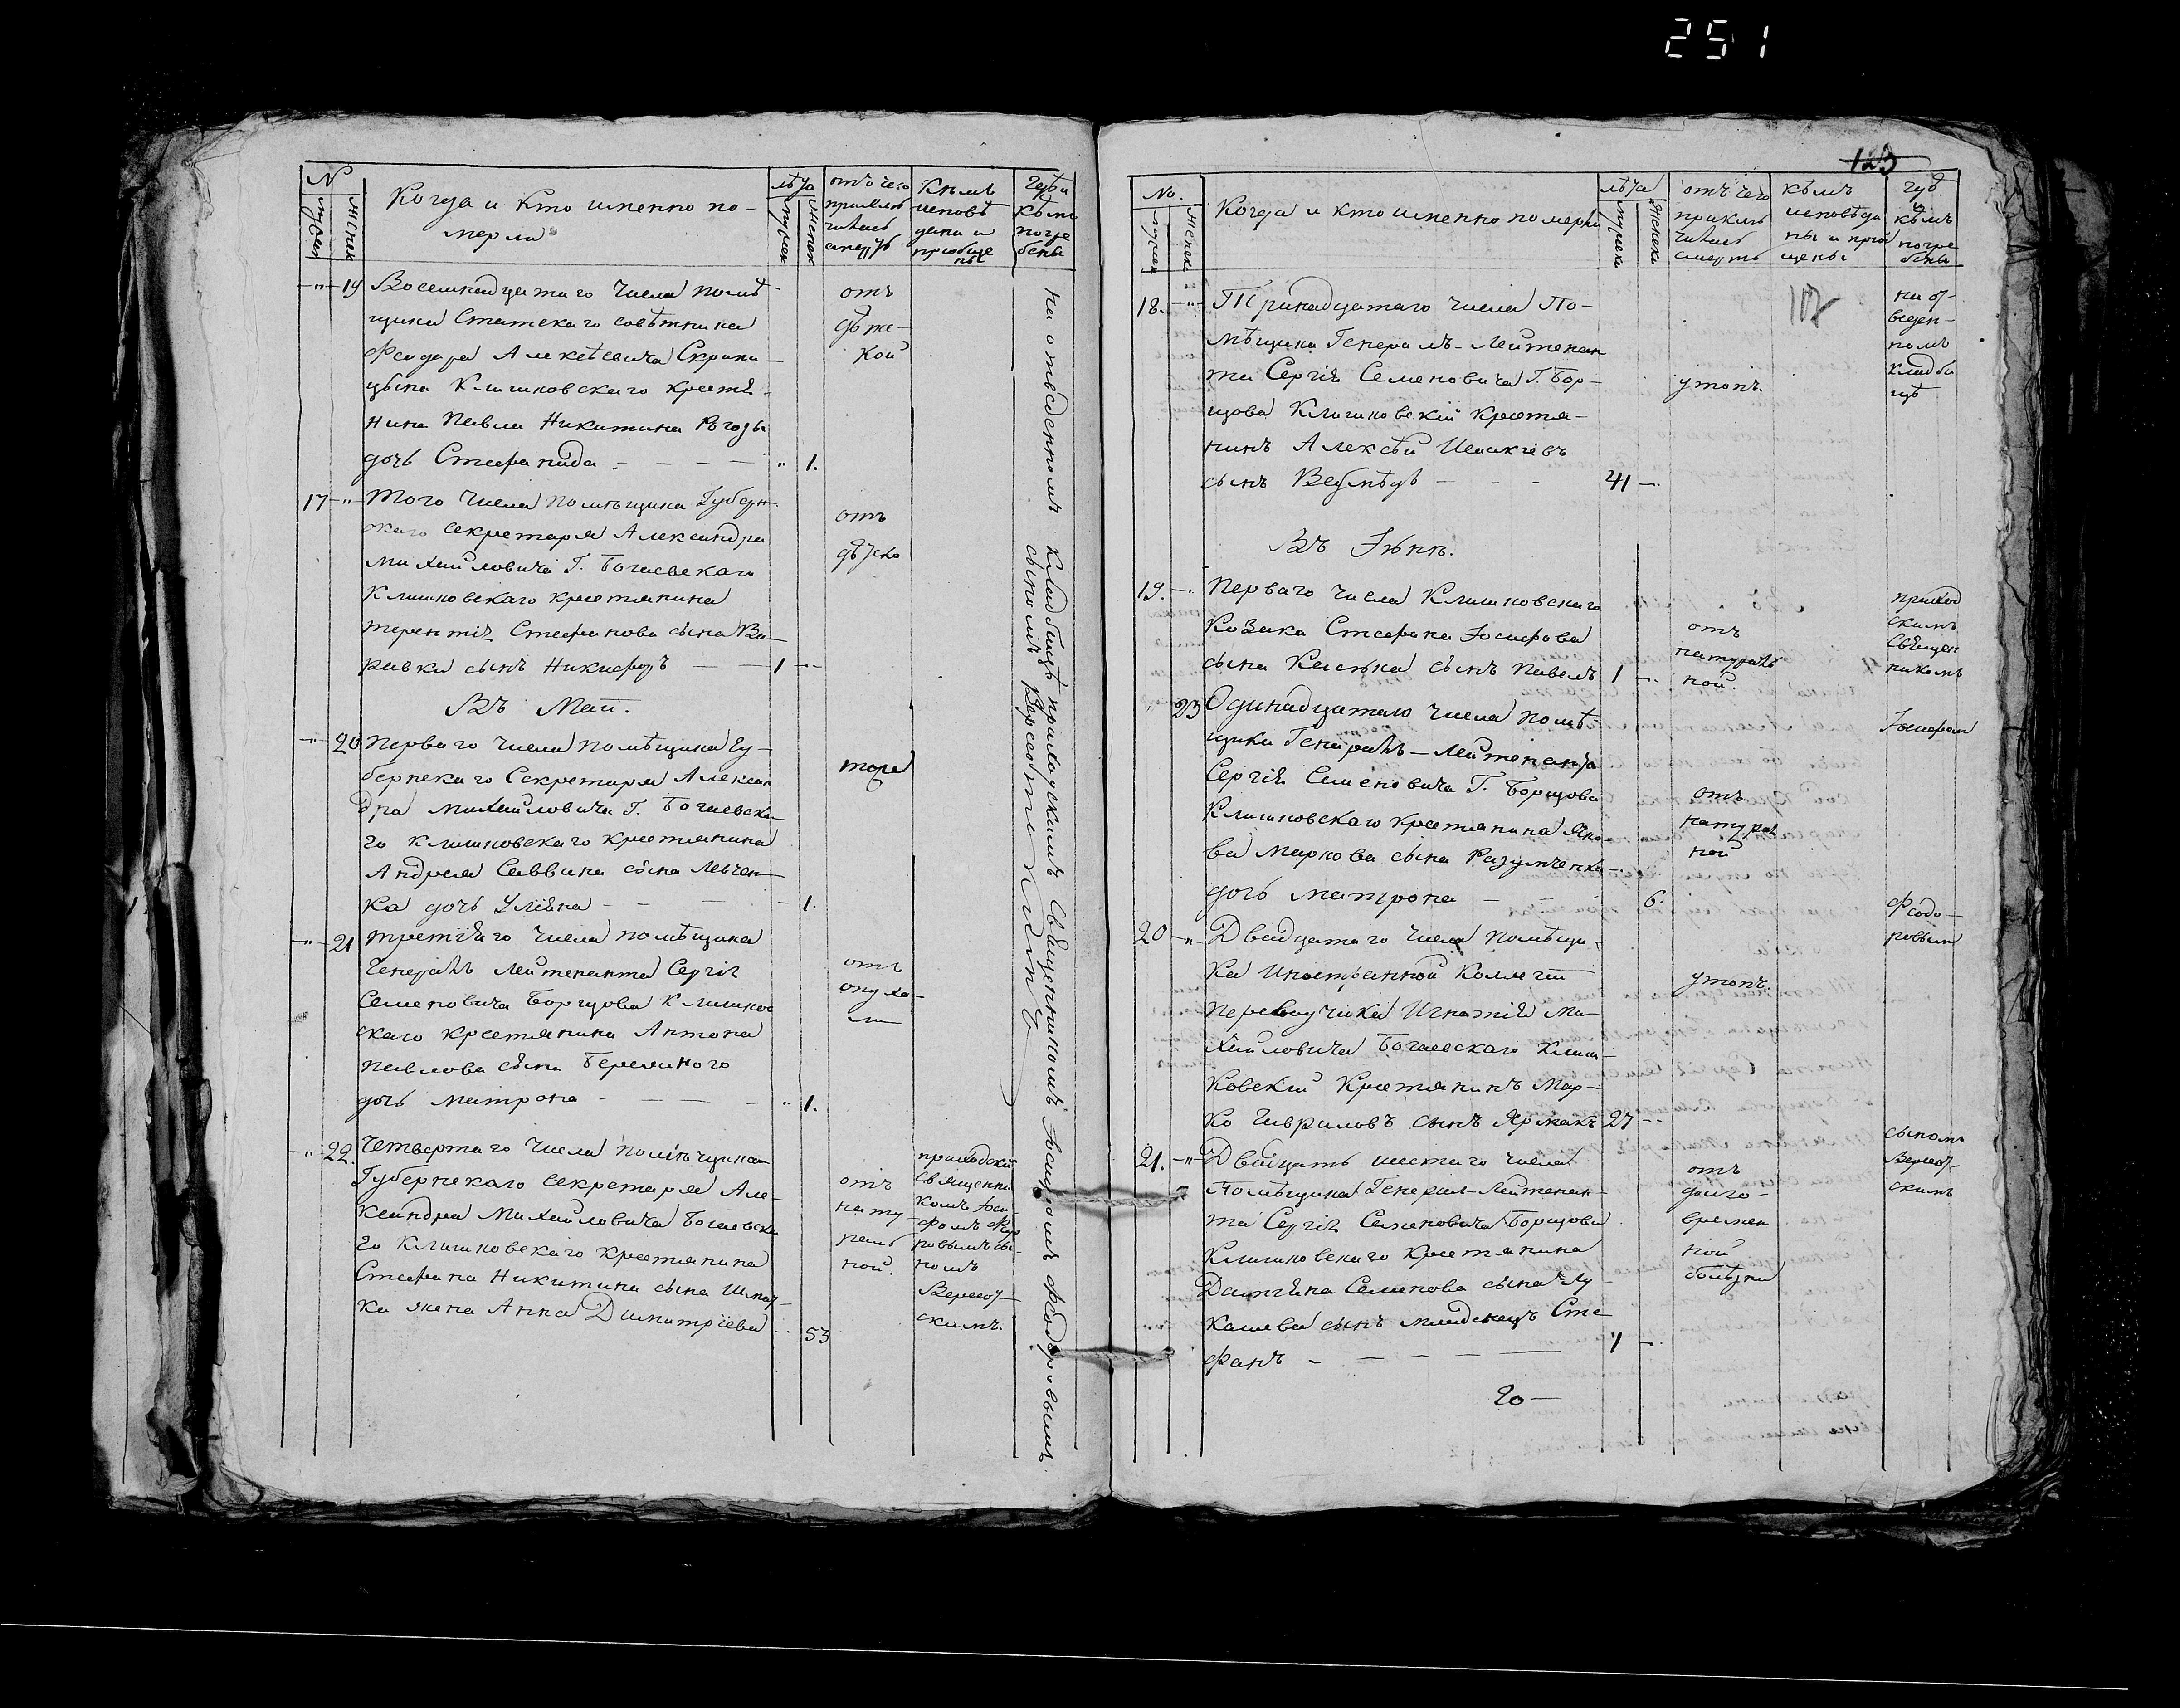 251
N
Мужеск
Женск
Когда и кто именно по-
мерли
лѣта
мужеск
женск
отъ чего
приклю
чилась
смерть
Кѣмъ
исповѣ
даны и
пріобще
ны
Гдѣ и
кѣмъ
погре
бены
19 Восемнадцатаго числа помѣ-
щика Статскаго совѣтника
Феодора Алексѣевича Скрипи-
цына Клишковскаго крестья-
нина Павла Никитина
дочь Стефанида 1.
отъ
17 Того числа помѣщика Губерн-
скаго секретаря Александра
Михайловича Г. Богаевскаго
Клишковскаго крестьянина
Терентія Стефанова сына
сынъ Никифоръ 1
отъ
Въ Маіи.
20 Перваго числа помѣщика Гу-
бернскаго Секретаря Алексан
дра Михайловича Г. Богаевска-
го Клишковскаго крестьянина
Андрея Саввина сына Левчен-
ка дочь Уліяна 1.
тоже
21 Третіяго числа помѣщика
Генералъ Лейтенанта Сергія
Семеновича Борщова Клишков
скаго крестьянина Антона
Павлова сына
дочь Матрона 1.
отъ
опухо-
ли
22. Четвертаго числа помѣщика
Губернскаго секретаря Але-
ксандра Михайловича Богаевска
го Клишковскаго крестьянина
Стефана Никитина сына
ка жена Анна Димитріева 53
отъ
нату
раль
ной.
приходски
Священни
комъ Іоси-
фомъ Фео
ровымъ сы-
номъ
Вересот-
скимъ.
На отведенномъ кладбищѣ приходскимъ Священникомъ Іосифомъ Федоровымъ
сыномъ Вересотскимъ
123
No.
Мужеск
Женска
Когда и кто именно померли
лѣта
мужеска
Женска
отъ чего
приклю
чилась
смерть
кѣмъ
исповѣда
ны и пріоб
щены
гдѣ
и
кѣмъ
погре
бены
18. Тринадцатаго числа По-
мѣщика Генералъ-Лейтенан
та Сергія Семеновича Г. Бор-
щова Клишковскій крестья-
нинъ Алексѣй
сынъ 41
утопъ.
на от-
веден-
номъ
кладби
щѣ
Въ Іюнѣ.
19. Перваго числа Клишковскаго
Козака Стефана Іосифова
сына сынъ Павелъ 1
отъ
натураль
ной.
приход
скимъ
Священ
никомъ
23 Одинадцатаго числа помѣ-
щика Генералъ-Лейтенанта
Сергія Семеновича Г. Борщова
Клишковскаго крестьянина Яко-
ва Маркова сына Разумѣнка
дочь Матрона 6.
отъ
натурал
ной
Іосифом
Федо-
ровым
20 Двадцатаго числа помѣщи-
ка Иностранной Коллегіи
Переводчика Игнатія Ми-
хайловича Богаевскаго Клиш-
ковский Крестьянинъ Мар-
ко Гавриловъ сынъ Ярмакъ 27
утопъ
21. Двадцать шестаго числа
Помѣщика Генерал-Лейтенан-
та Сергія Семеновича Борщова
Клишковскаго Крестьянина
Даміяна Семенова сына Лу-
кашева сынъ младенецъ Сте
фанъ 1
отъ
долго-
времен
ной
болѣзни
сыном
Вересот-
скимъ
20